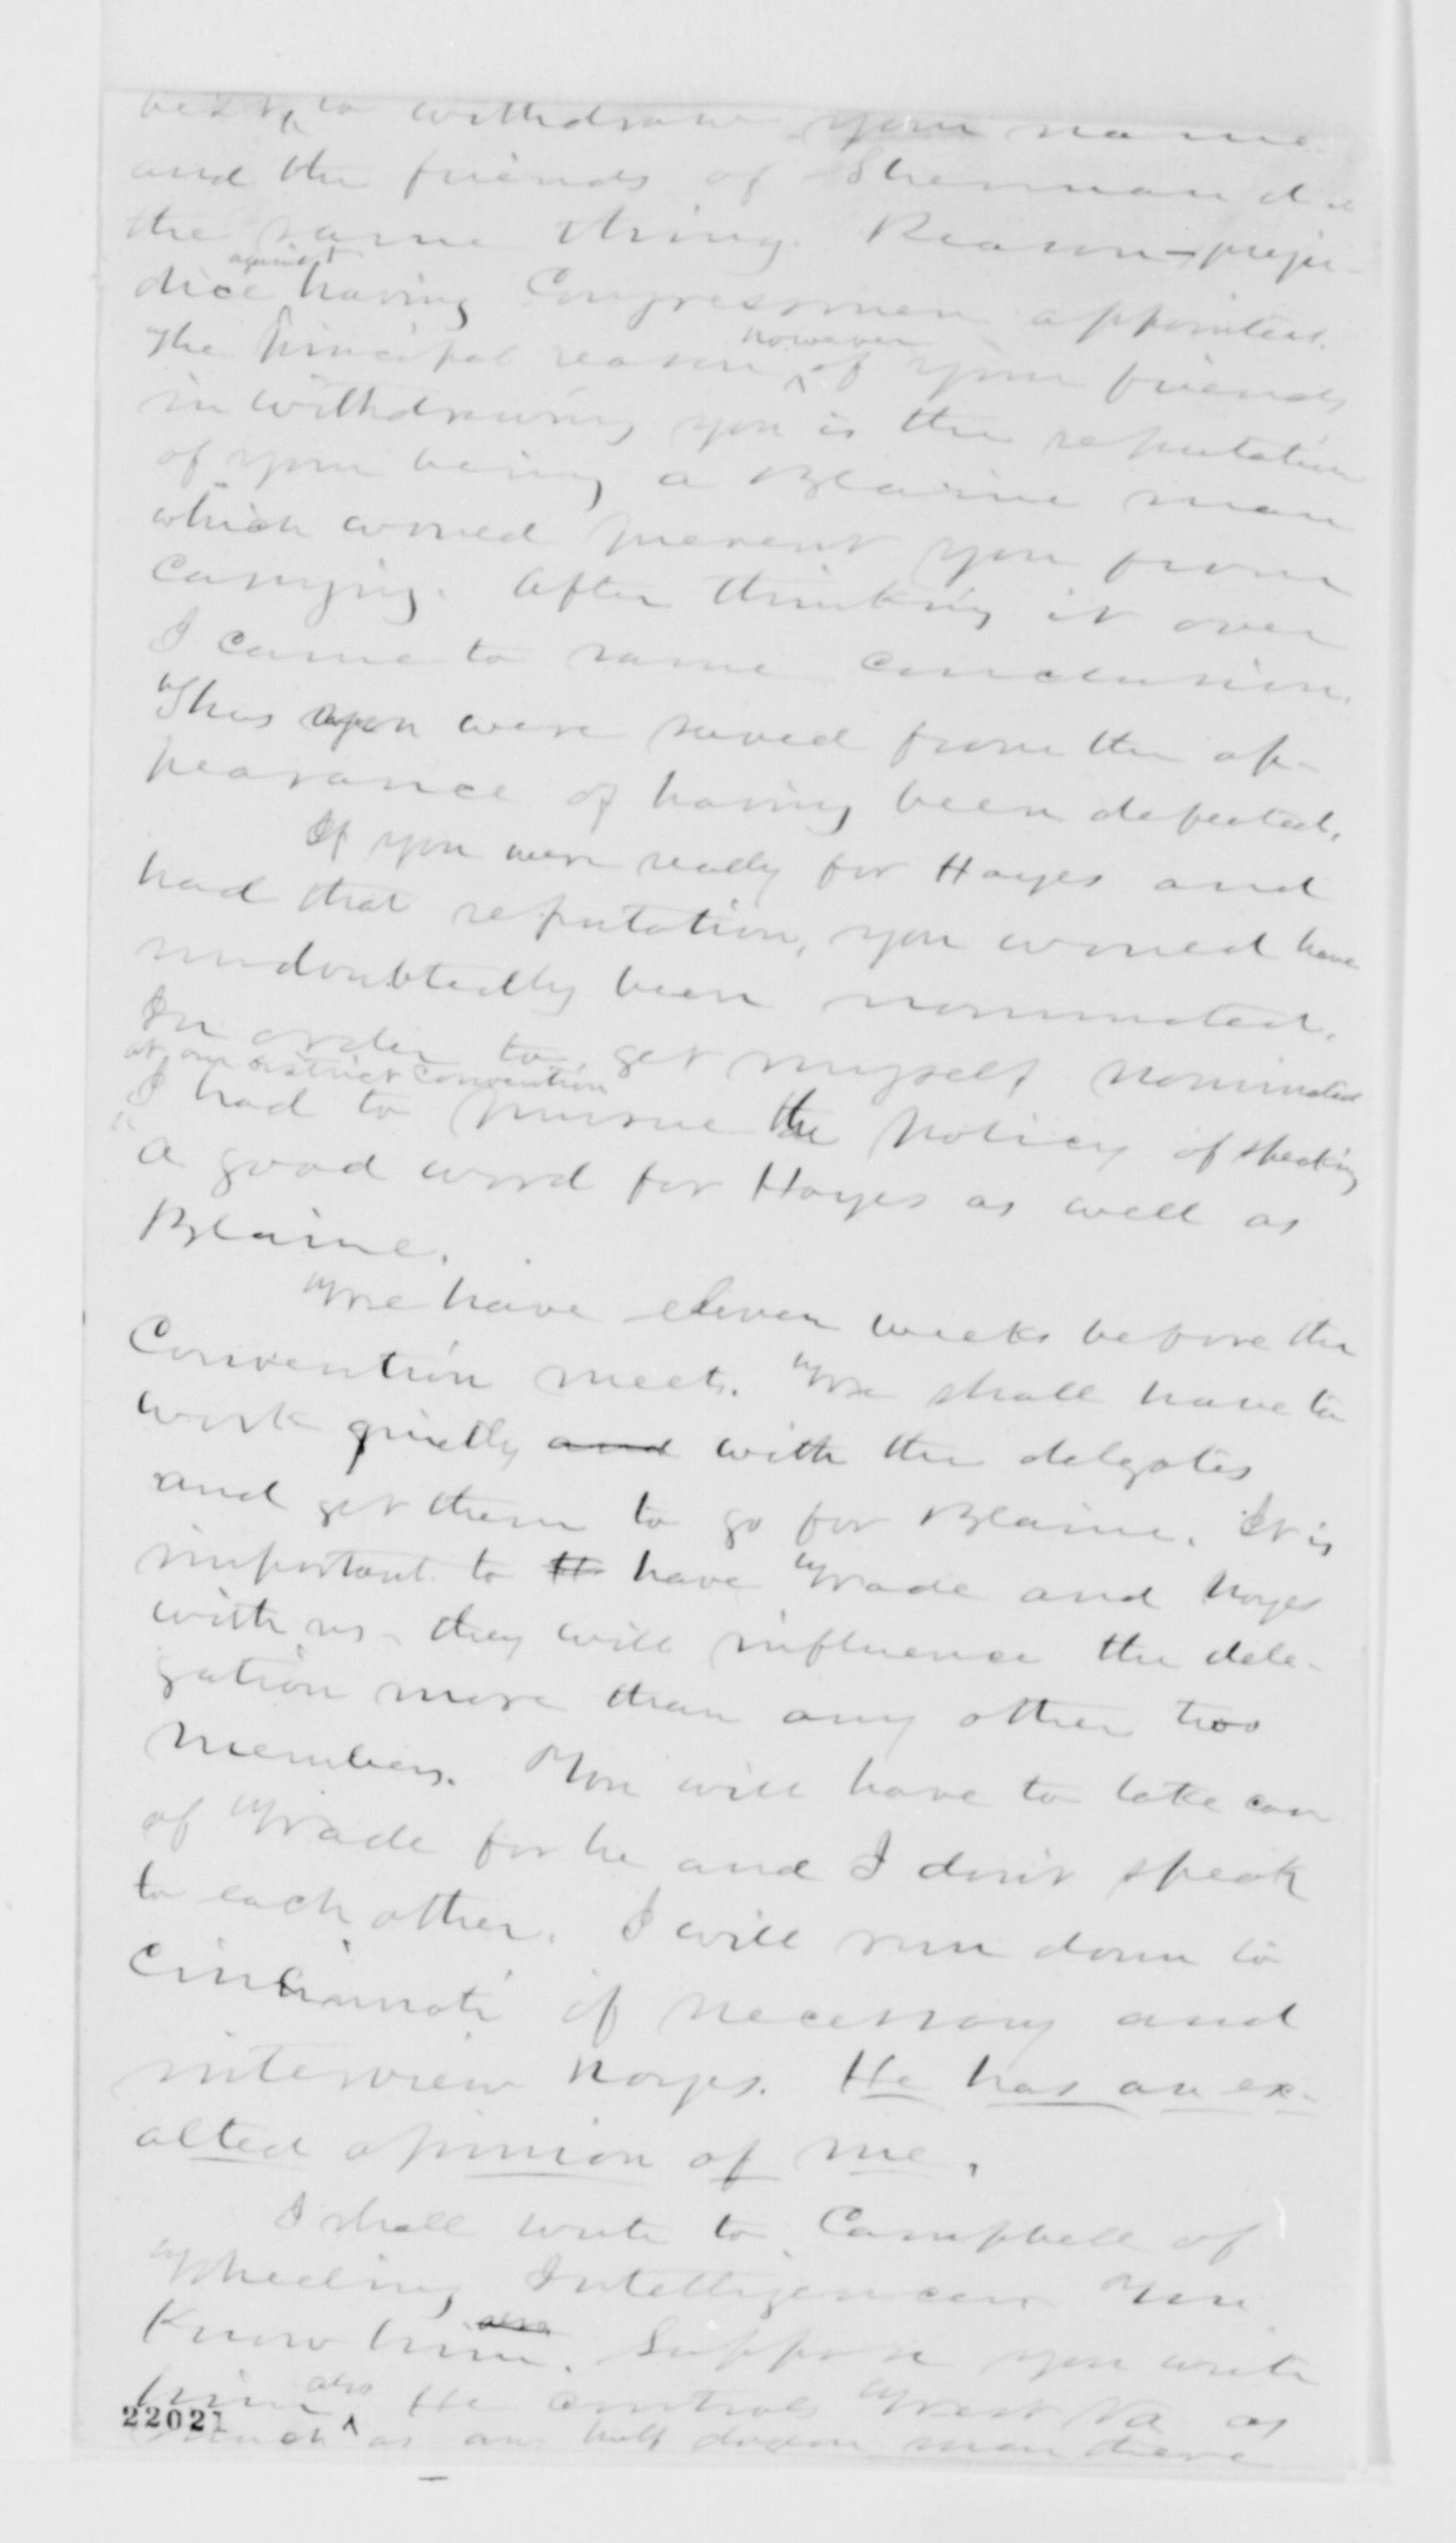 best to withdraw your name
and the friends of Sherman did
the same thing. Reason - preju-
dice against having Congressmen appointed.
The principal reason however of your friends
in withdrawing you is the reputation
of your being a Blaine man
which would prevent you from
carrying. After thinking it over
I came to same conclusion.
Thus you were saved from the ap-
pearance of having been defeated.
If you were really for Hayes and
had that reputation, you would have
undoubtedly been nominated.
In order to get myself nominated
at our district convention
I had to pursue the policy of speaking
a good word for Hayes as well as
Blaine.
We have eleven weeks before the
Convention meets. We shall have to
work quietly and with the delegates
and get them to go for Blaine. It is
important to have Wade and Noyes
with us - they will influence the dele-
gation more than any other two
members. You will have to take care
of Wade for he and I don't speak
to each other. I will run down to
Cincinnati if necessary and
interview Noyes. He has an ex-
alted opinion of me.
I shall write to Campbell of
Wheeling Intelligencer. You
know him. also Suppose you write
him also He controls West Va as
much as any half dozen men there
22021